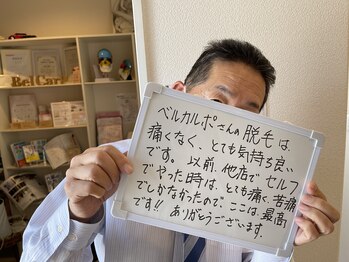 ベルカルポさんの脱毛は、
痛くなく、とても気持ち良い
です。以前、他店でセルフ
でやった時は、とても痛く、苦痛
でしかなかったので、ここは、最高
です!! ありがとうございます。